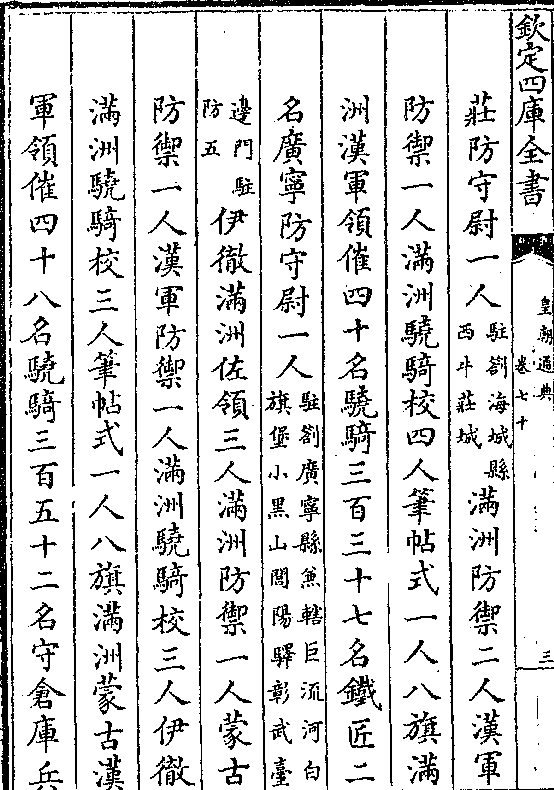 欽定四庫全書
皇朝通典
卷七十
三
莊防守尉一人駐劄海城縣西牛莊城滿洲防禦二人漢軍
防禦一人滿洲驍騎校四人筆帖式一人八旗滿
洲漢軍領催四十名驍騎三百三十七名鐵匠二
名廣寧防守尉一人駐劄廣寧縣兼轄巨流河白旗堡小黑山閭陽驛彰武臺
邊門駐防五伊徹滿洲佐領三人滿洲防禦一人蒙古
防禦一人漢軍防禦一人滿洲驍騎校三人伊徹
滿洲驍騎校三人筆帖式一人八旗滿洲蒙古漢
軍領催四十八名驍騎三百五十二名守倉庫兵